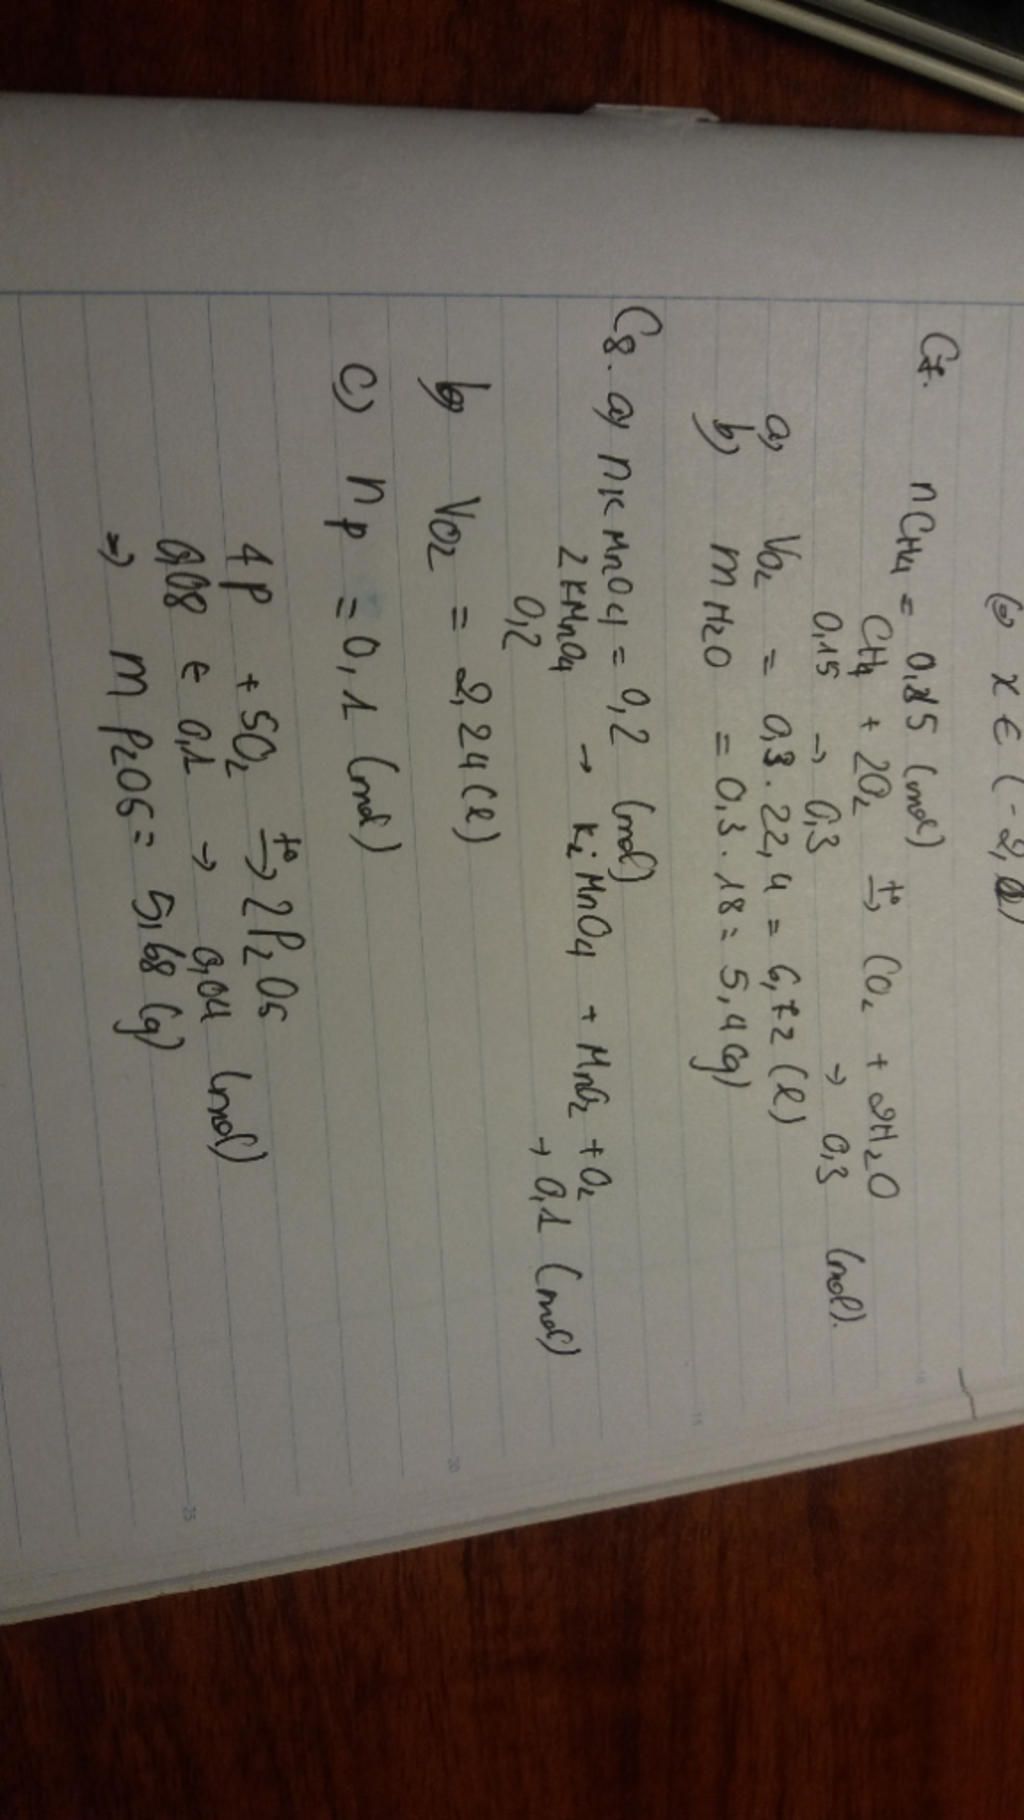 (=) x ∈ (-2,
C7. nCH4 = 0,15 (mol)
CH4 + 2O2 t°→ CO2 + 2H2O
0,15 → 0,3 → 0,3 (mol).
a, VO2 = 0,3 . 22,4 = 6,72 (l)
b) m H2O = 0,3 . 18 = 5,4 (g)
C8. a, nKMnO4 = 0,2 (mol)
2KMnO4 → K2MnO4 + MnO2 + O2
0,2 → 0,1 (mol)
b) VO2 = 2,24 (l)
c) nP = 0,1 (mol)
4P + 5O2 t°→ 2P2O5
0,08 ← 0,1 → 0,04 (mol)
=) m P2O5 = 5,68 (g)
15
20
25